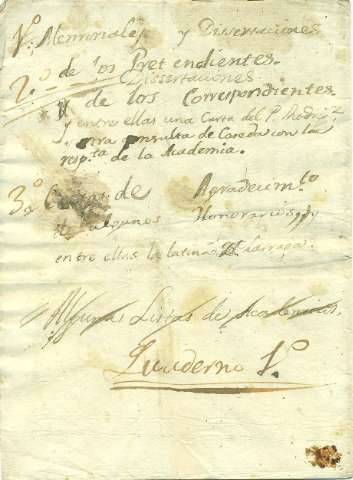 1.º Memoriales y Dissertaciones
de los Pretendientes.
2.º Dissertaciones
de los Correspondientes
y entre ellas una Carta del P.
otra consulta de con la
resp.ta de la Academia.
3.º de Agradecim.to
de algunos Honorarios,
entre ellas la latina Larraga.
Algunas Listas de Academicos.
Quaderno 1.º